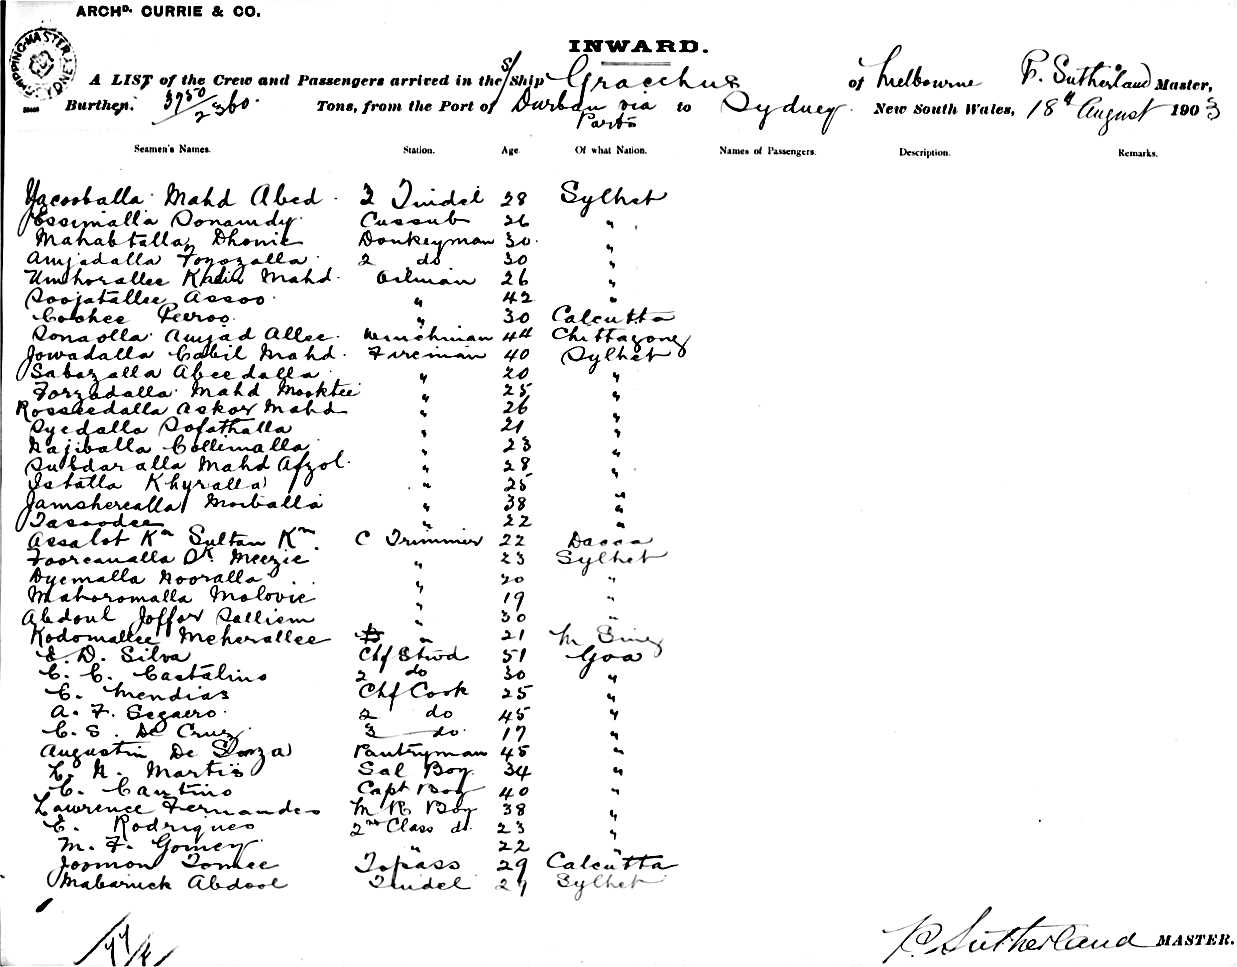 ARCHD. CURRIE & CO.
SHIPPING MASTER SYDNEY
INWARD.
A LIST of the Crew and Passengers arrived in the S/Ship Gracchus of Melbourne P. Sutherland Master,
Burthen. 3750/2360. Tons, from the Port of Durban via Ports to Sydney. New South Wales, 18th August 1903
Seamen's Names. Station. Age Of what Nation. Names of Passengers. Description. Remarks.
Yacooballa Mahd Abed. 2 Tindel 28 Sylhet
Essimalla Sonamdy. Cussub 26 "
Mahabtalla Dhonie Donkeyman 30 "
Amjadalla Fozozalla 2 do 30 "
Umborallee Kadir Mahd. Oilman 26 "
Soojatallee Assoo. " 42 "
Cochee Peeroo. " 30 Calcutta
Sonaolla Amjad Allee. Winchman 44 Chittagong
Jowadalla Cabil Mahd. Fireman 40 Sylhet
Sabazalla Abeedalla " 20 "
Forzadalla Mahd Mooktee " 25 "
Rosseedalla Askor Mahd " 26 "
Syedalla Sofathalla " 21 "
Najiballa Collimalla " 23 "
Subdaralla Mahd Afzol. " 28 "
Istalla Khyralla " 25 "
Jamsherealla Moballa " 38 "
Tassodee " 22 "
Assalot Kn Sultan Kn. C Trimmer 22 Dacca
Foorcanalla Sk. Meezie " 23 Sylhet
Dyemalla Nooralla " 20 "
Mahoromalla Molovie " 19 "
Abdoul Joffor Salliem " 30 "
Kodomallee Meherallee " 21 M Sing
E. D. Silva Chf Stwd 51 Goa
C. C. Castalino 2 do 30 "
C. Mendias Chf Cook 25 "
A. F. Segaero. 2 do 45 "
C. S. De Cruz. 3 do. 17 "
Augustin De Souza Pantryman 45 "
L. N. Martis Sal Boy. 34 "
C. Cantino Capt Boy 40 "
Lawrence Fernandes M R Boy 38 "
C. Rodrigues 2nd Class do. 23 "
M. F. Gomez. " 22 "
Joomon Tomee Topass 29 Calcutta
Mabaruck Abdool Tindel 29 Sylhet
P. Sutherland MASTER.